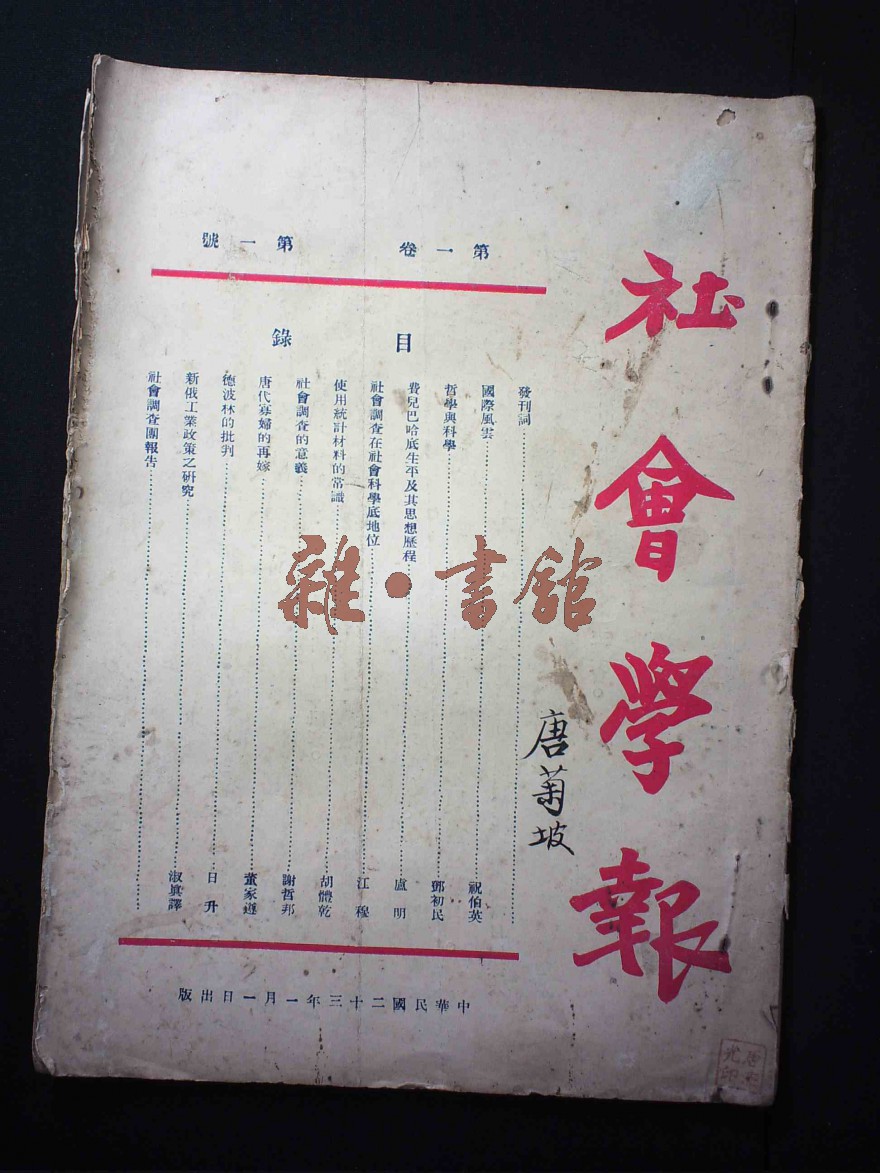 社會學報
第一卷 第一號
目錄
發刊詞
國際風雲 祝伯英
哲學與科學 鄧初民
費兒巴哈底生平及其思想歷程 盧明
社會調查在社會科學底地位 江穆
使用統計材料的常識 胡體乾
社會調查的意義 謝哲邦
唐代寡婦的再嫁 董家遵
德波林的批判 日升
新俄工業政策之研究 淑真譯
社會調查團報告
中華民國二十三年一月一日出版
唐菊坡
雜·書館